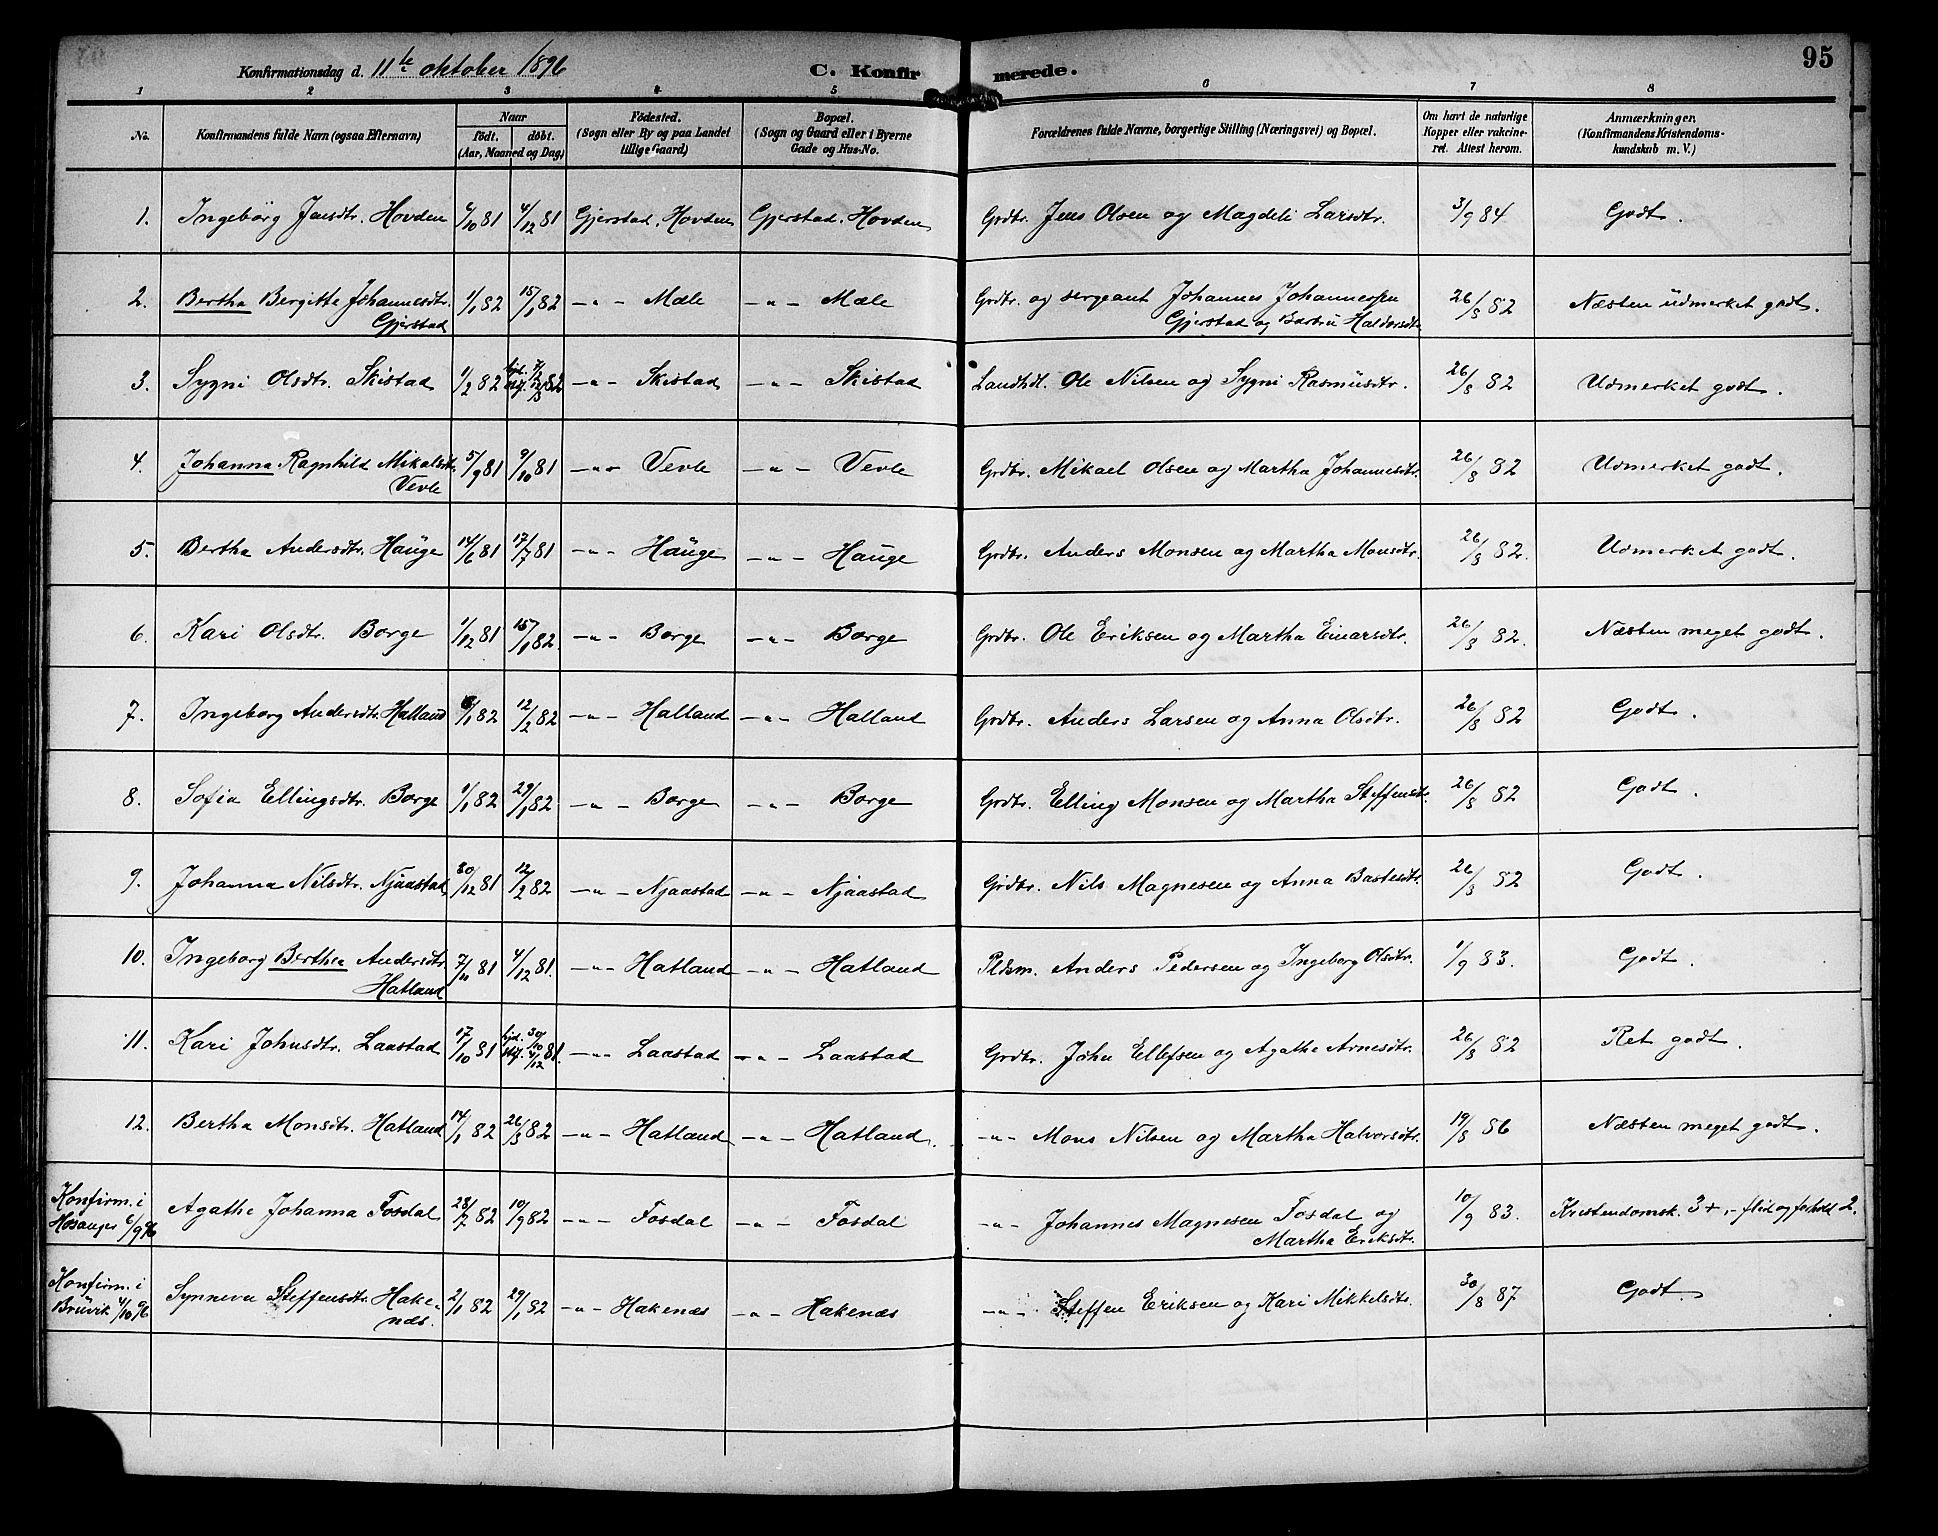 95
Konfirmationsdag d. 11te oktober 1896
C. Konfirmerede.
1 2 3 4 5 6 7 8
No. Konfirmandens fulde Navn (ogsaa Efternavn) Naar födt. döbt. (Aar, Maaned og Dag) Födested. (Sogn eller By og paa Landet tillige Gaard) Bopæl. (Sogn og Gaard eller i Byerne Gade og Hus-No. Forældrenes fulde Navne, borgerlige Stilling (Næringsvei) og Bopæl. Om havt de naturlige Kopper eller vakcineret. Attest herom. Anmærkninger. (Konfirmandens Kristendomskundskab m. V.)
1. Ingebörg Jensdtr. Hovden 6/10 81 4/12 81 Gjerstad, Hovden Gjerstad. Hovden Grdbr. Jens Olsen og Magdeli Larsdtr. 3/9 84 Godt.
2. Bertha Bergitte Johannesdtr. Gjerstad 1/1 82 15/1 82 -"- Mæle -"- Mæle Grdbr. og sergeant Johannes Johannessen Gjerstad og Barbru Haldorsdtr. 26/8 82 Næsten üdmerket godt.
3. Sygni Olsdtr. Skistad 1/2 82 hjd. 7/2 82 -"- Skistad -"- Skistad Landhdl. Ole Nilsen og Sygni Rasmüsdtr. 26/8 82 Udmerket godt.
4. Johanna Ragnhild Mikalsdtr. Vevle 5/9 81 9/10 81 -"- Vevle -"- Vevle Grdbr. Mikael Olsen og Martha Johannesdtr. 26/8 82 Udmerket godt.
5. Bertha Andersdtr. Haüge 14/6 81 17/7 81 -"- Haüge -"- Haüge Grdbr. Anders Monsen og Martha Monsdtr. 26/8 82. Udmerket godt.
6. Kari Olsdtr. Borge 1/12 81 15/1 82. -"- Borge -"- Borge Grdbr. Ole Eriksen og Martha Einarsdtr. 26/8 82. Næsten meget godt.
7. Ingeborg Andersdtr. Halland /1 82 12/2 82 -"- Halland -"- Halland Grdbr. Anders Larsen og Anna Olsdtr. 26/8 82 Godt.
8. Sofia Ellingsdtr. Borge 1/1 82 29/1 82 -"- Borge -"- Borge Grdbr. Elling Monsen og Martha Steffensdtr. 26/8 82 Godt.
9. Johanna Nilsdtr. Njaastad 30/12 81 12/2 82 -"- Njaastad -"- Njaastad Grdbr. Nils Magnesen og Anna Bastesdtr. 26/8 82 Godt.
10. Ingeborg Berthea Andersdtr. Hatland 7/11 81 4/12 81. -"- Hatland -"- Hatland Pldsm. Anders Pedersen og Ingeborg Olsdtr. 1/9 83. Godt.
11. Kari Johnsdtr. Laastad 17/10 81 hjd. 30/10 4/12 81. -"- Laastad -"- Laastad Grdbr. John Ellefsen og Agathe Arnesdtr. 26/8 82 Ret godt.
12. Bertha Monsdtr. Hatland 14/1 82 26/3 82 -"- Hatland -"- Hatland. -"- Mons Nilsen og Martha Halvorsdtr. 19/8 86 Næsten meget godt.
Konfirm. i Hosanger 6/9 96 Agathe Johanna Fosdal 28/7 82 10/9 82 -"- Fosdal -"- Fosdal -"- Johannes Magnesen Fosdal og Martha Eriksdtr. 10/9 83. Kristendomsk. 3+,- flid og forhold 2.
Konfirm. i Brüvik 4/10 96 Synneva Steffensdtr. Hakenæs. 2/1 82 29/1 82 -"- Hakenæs -"- Hakenæs -"- Steffen Eriksen og Kari Mikkelsdtr. 30/8 87 Godt.